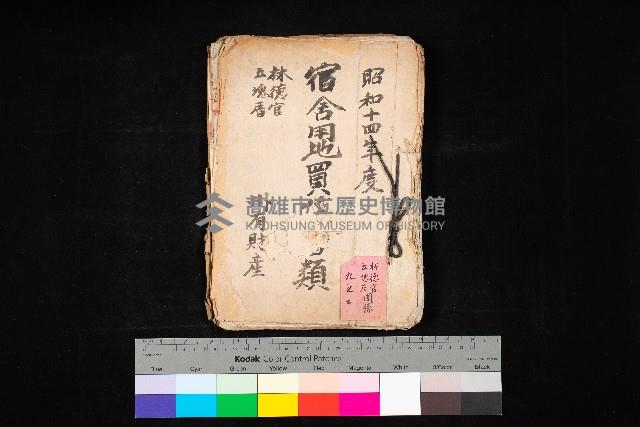 昭和十四年度
宿舍用地買
類
林德官
五塊厝
州有財產
林德官
五塊厝關係
高雄市立歷史博物館
KAOHSIUNG MUSEUM OF HISTORY
Kodak Color Control Patches
Blue Cyan Green Yellow Red Magenta White 3/Color Black